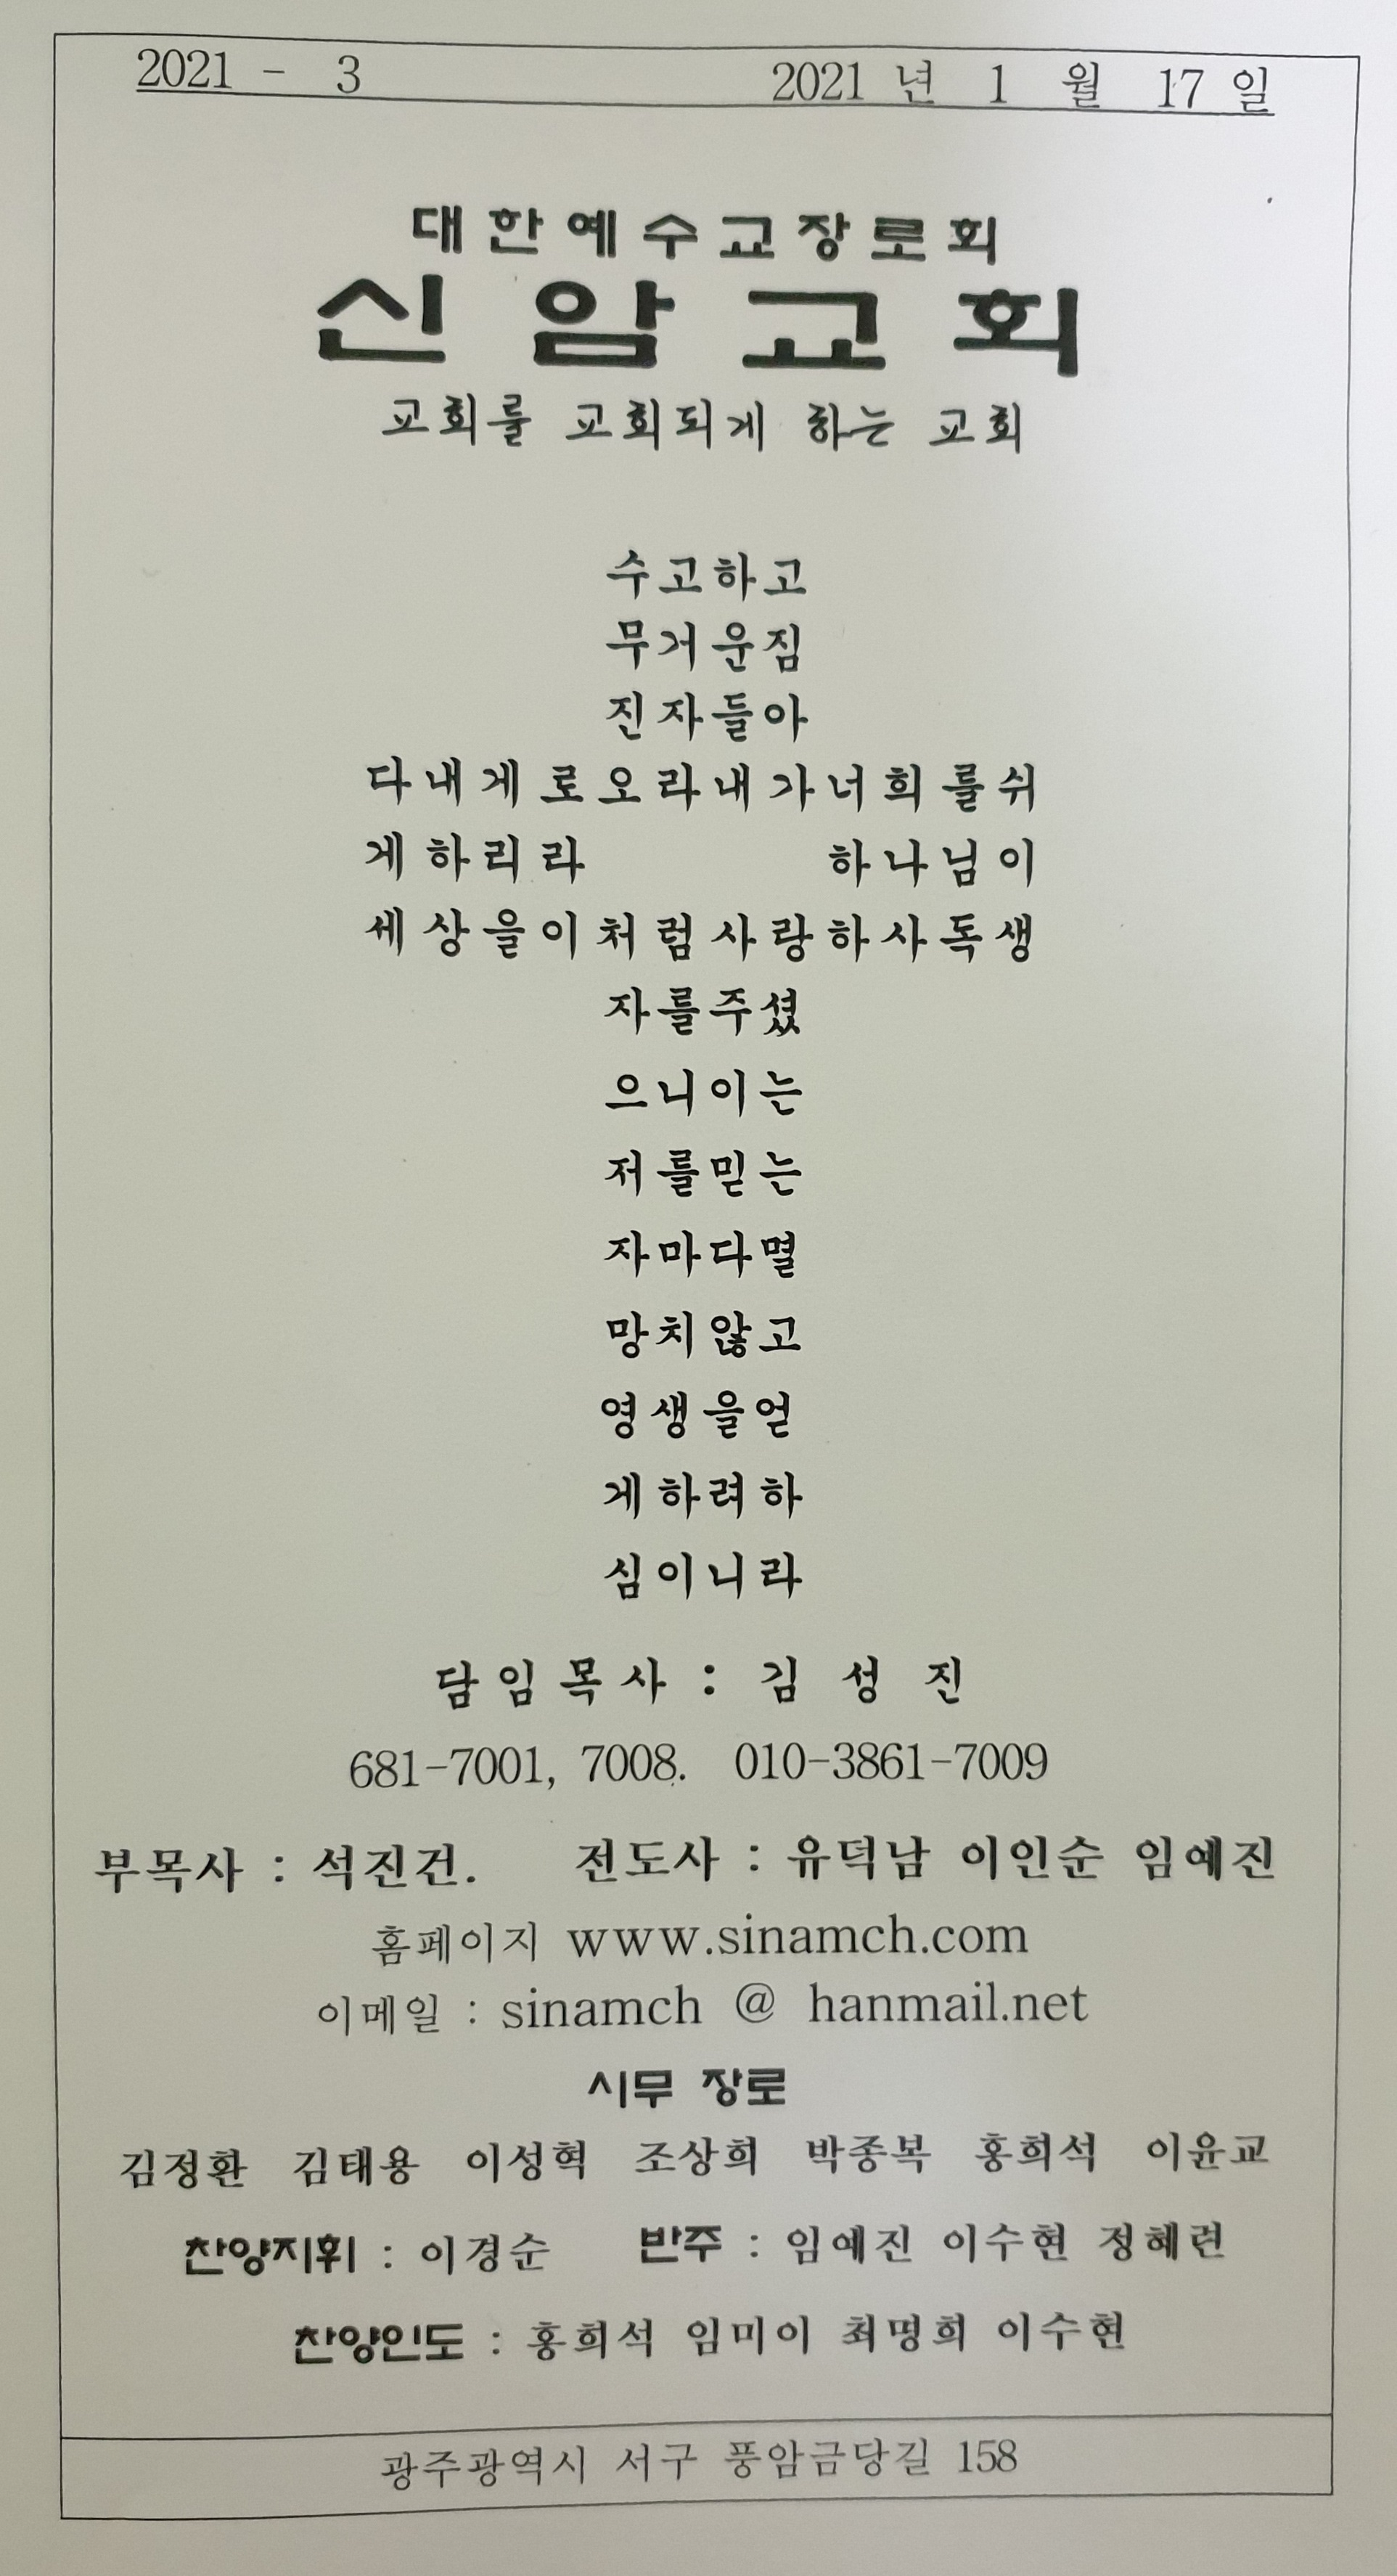 2021 - 3 2021 년 1 월 17 일
대한예수교장로회
신암교회
교회를 교회되게 하는 교회
수고하고
무거운짐
진자들아
다내게로오라내가너희를쉬
게하리라 하나님이
세상을이처럼사랑하사독생
자를주셨
으니이는
저를믿는
자마다멸
망치않고
영생을얻
게하려하
심이니라
담임목사 : 김 성 진
681-7001, 7008. 010-3861-7009
부목사 : 석진건. 전도사 : 유덕남 이인순 임예진
홈페이지 www.sinamch.com
이메일 : sinamch @ hanmail.net
시무 장로
김정환 김태용 이성혁 조상희 박종복 홍희석 이윤교
찬양지휘 : 이경순 반주 : 임예진 이수현 정혜련
찬양인도 : 홍희석 임미이 최명희 이수현
광주광역시 서구 풍암금당길 158